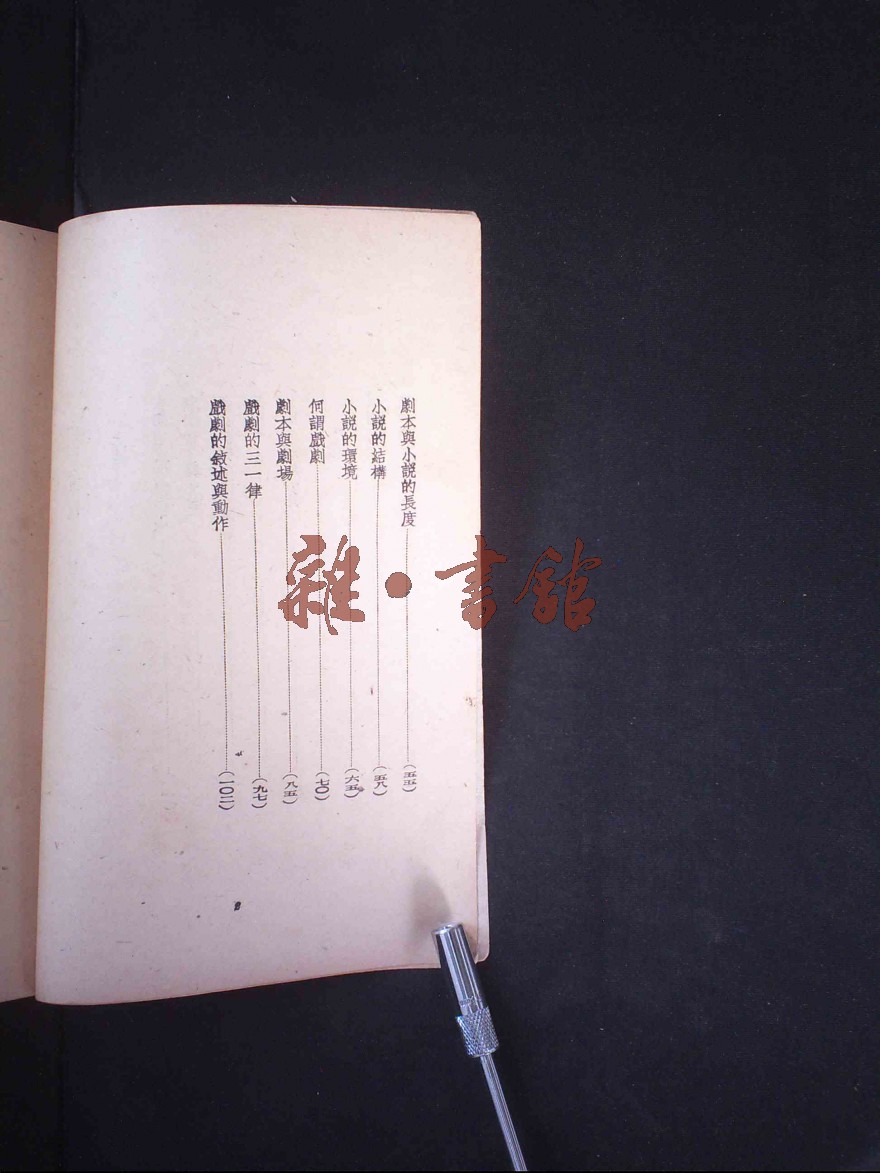 劇本與小説的長度……(五五)
小説的結構……(五八)
小説的環境……(六五)
何謂戲劇……(七〇)
劇本與劇場……(八五)
戲劇的三一律……(九七)
戲劇的敍述與動作……(一〇二)
雜•書館